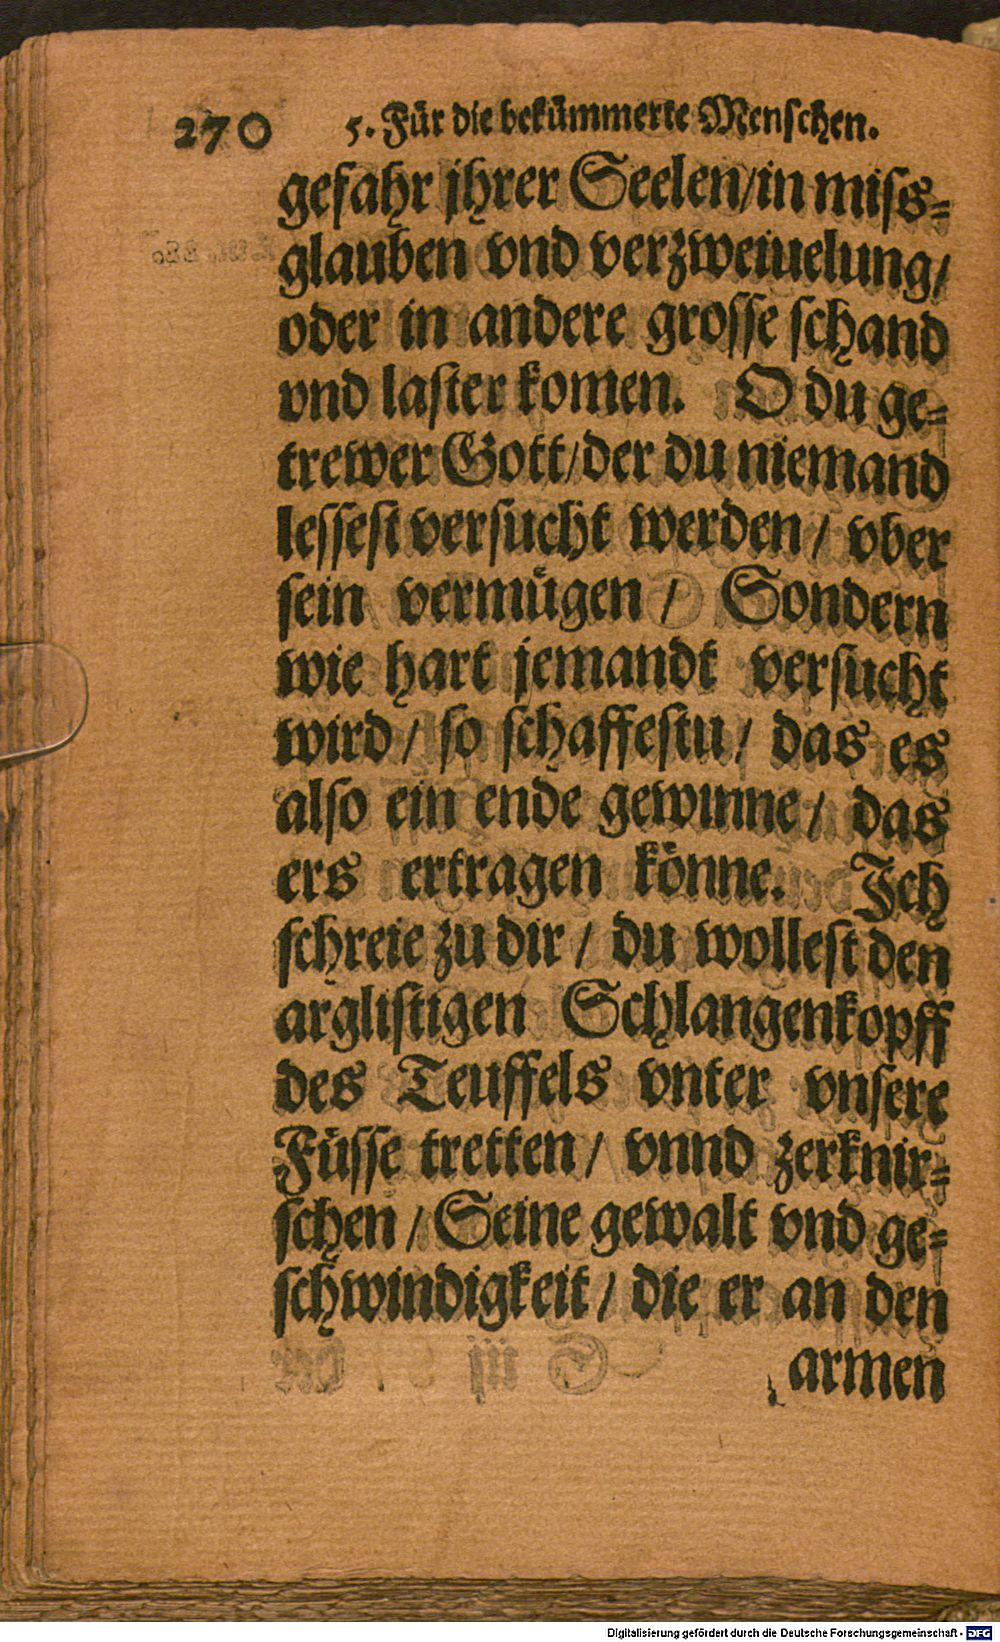 270 5. Für die bekümmerte Menschen.
gefahr jhrer Seelen/in miss-
glauben vnd verzweiuelung/
oder in andere grosse schand
vnd laster komen. O du ge-
trewer Gott/der du niemand
lessest versucht werden / vber
sein vermügen / Sondern
wie hart jemandt versucht
wird / so schaffestu / das es
also ein ende gewinne / das
ers ertragen könne. Ich
schreie zu dir / du wollest den
arglistigen Schlangenkopff
des Teuffels vnter vnsere
Füsse tretten / vnnd zerknir-
schen / Seine gewalt vnd ge-
schwindigkeit / die er an den
armen
Digitalisierung gefördert durch die Deutsche Forschungsgemeinschaft - DFG